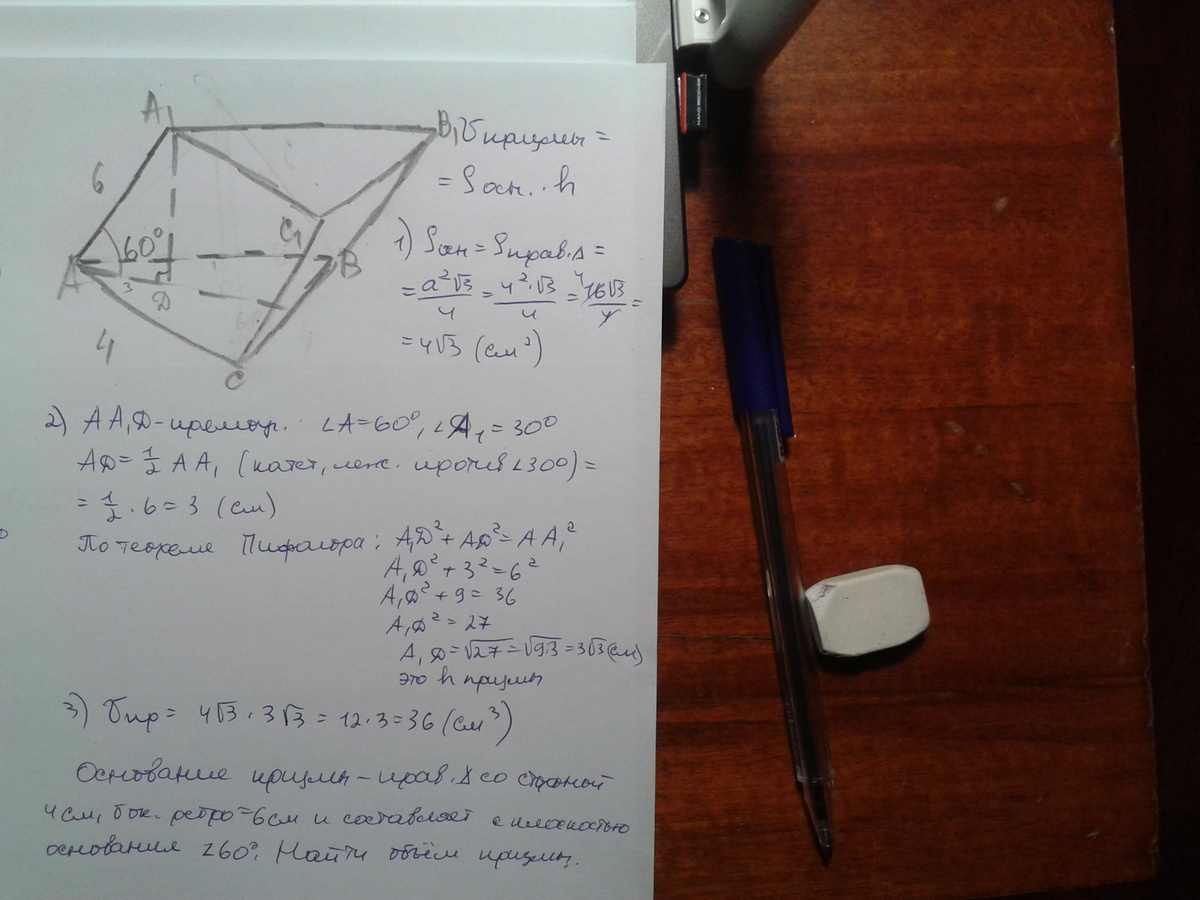 A₁
B₁
6
60°
C₁
A
3
D
B
4
C
Vпризмы =
= Sосн. · h
1) Sосн = Sправ.Δ =
= a²√3/4 = 4²·√3/4 = 16√3/4 =
= 4√3 (см²)
2) AA₁D – прямоуг. ∠A = 60°, ∠A₁ = 30°
AD = 1/2 AA₁ (катет, леж. против ∠30°) =
= 1/2 · 6 = 3 (см)
По теореме Пифагора: A₁D² + AD² = AA₁²
A₁D² + 3² = 6²
A₁D² + 9 = 36
A₁D² = 27
A₁D = √27 = √9·3 = 3√3 (см)
это h призмы
3) Vпр = 4√3 · 3√3 = 12 · 3 = 36 (см³)
Основание призмы – прав. Δ со стороной
4 см, бок. ребро = 6 см и составляет с плоскостью
основания ∠60°. Найти объём призмы.